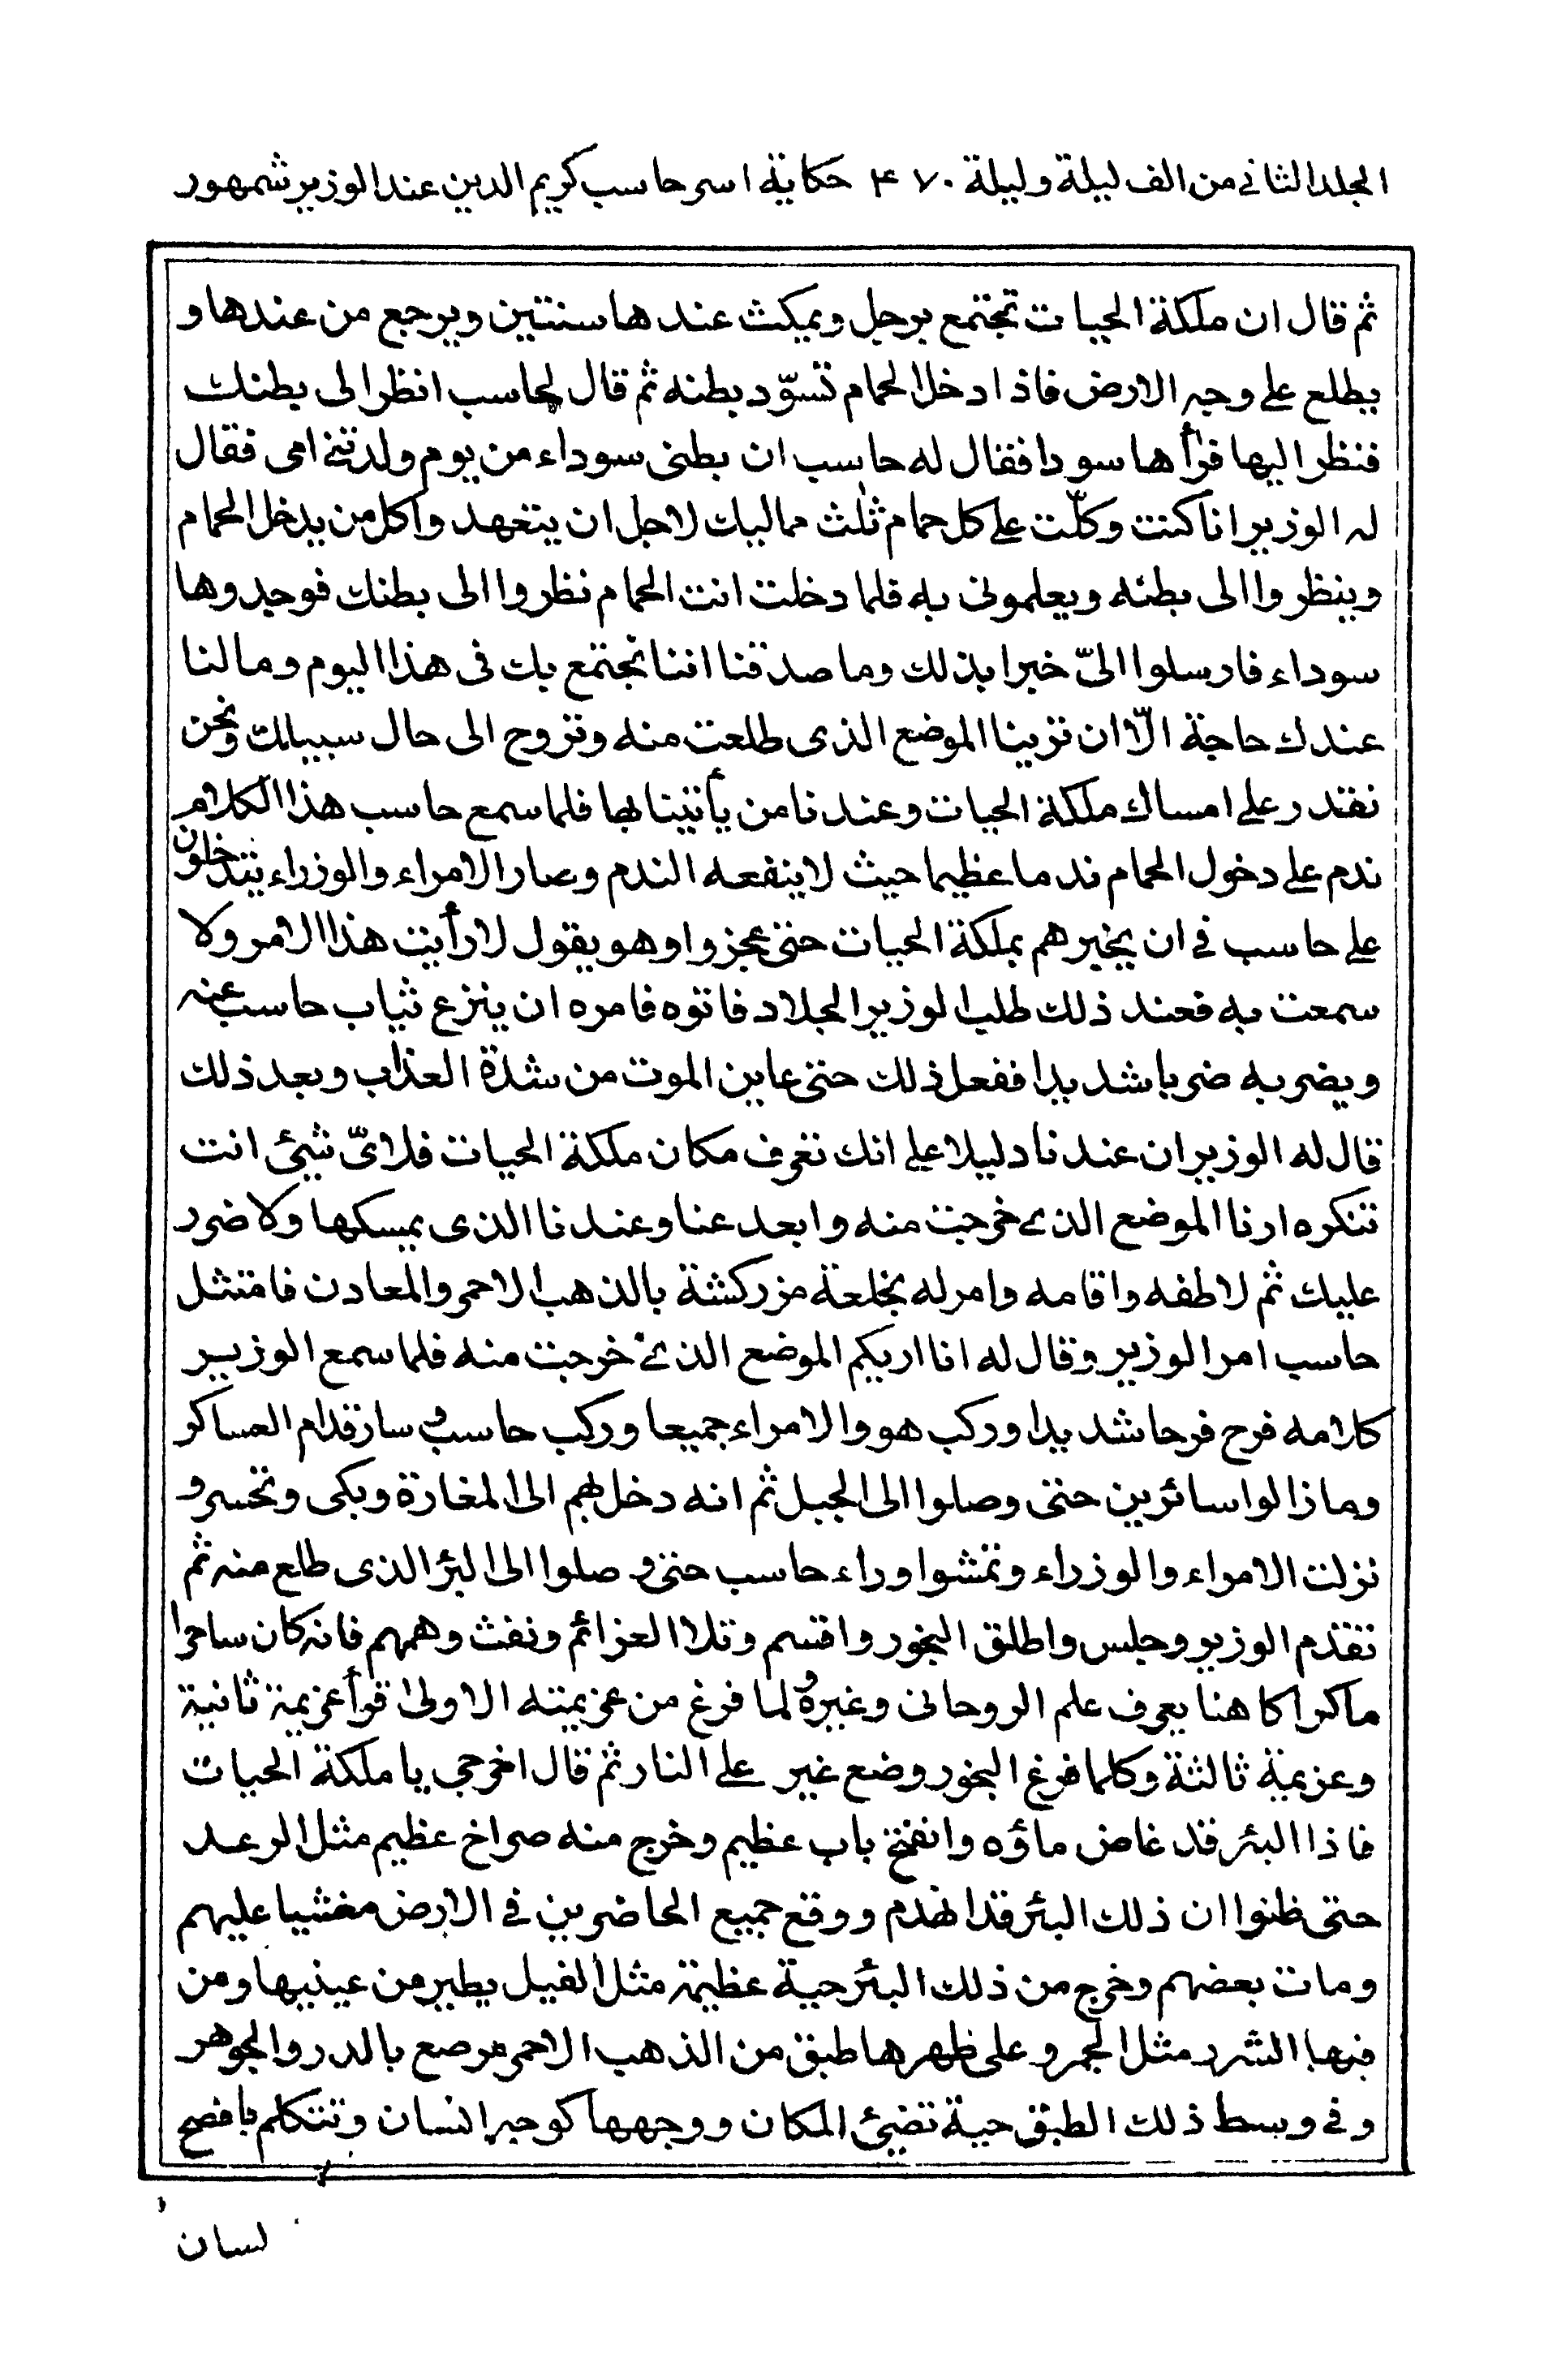 المجلد الثاني من الف ليلة وليلة ٧٠٤ حكاية اسر حاسب كريم الدين عند الوزير شمهور
ثم قال ان ملكة الحيات تجتمع برجل ويمكث عندها سنتين ويرجع من عندها و
يطلع على وجه الارض فاذا دخل الحمام تسوّد بطنه ثم قال لحاسب انظر الى بطنك
فنظر اليها فرأها سودا فقال له حاسب ان بطنى سوداء من يوم ولدتني امى فقال
له الوزير انا كنت وكلّت على كل حمام ثلٰث مماليك لاجل ان يتعهد وا كل من يدخل الحمام
وينظروا الى بطنه ويعلمونى به فلما دخلت انت الحمام نظروا الى بطنك فوجدوها
سوداء فارسلوا الىّ خبرا بذلك وما صدقنا اننا نجتمع بك فى هذا اليوم وما لنا
عندك حاجة الّا ان ترينا الموضع الذى طلعت منه وتروح الى حال سبيلك ونحن
نقدر على امساك ملكة الحيات وعندنا من يأتينا بها فلما سمع حاسب هذا الكلام
ندم على دخول الحمام ندما عظيما حيث لا ينفعه الندم وصار الامراء والوزراء يتدخلون
على حاسب في ان يخبرهم بملكة الحيات حتى عجزوا وهو يقول لا رأيت هذا الامر ولا
سمعت به فعند ذلك طلب الوزير الجلاد فاتوه فامره ان ينزع ثياب حاسب عنه
ويضربه ضربا شديدا ففعل ذلك حتى عاين الموت من شدة العذاب وبعد ذلك
قال له الوزير ان عندنا دليلا على انك تعرف مكان ملكة الحيات فلاىّ شيئ انت
تنكره ارنا الموضع الذي خرجت منه وابعد عنا وعندنا الذى يمسكها ولا ضرر
عليك ثم لاطفه واقامه وامر له بخلعة مزركشة بالذهب الاحمر والمعادن فامتثل
حاسب امر الوزير وقال له انا اريكم الموضع الذي خرجت منه فلما سمع الوزير
كلامه فرح فرحا شديدا وركب هو والامراء جميعا وركب حاسب و سار قدام العساكر
وما زالوا سائرين حتى وصلوا الى الجبل ثم انه دخل بهم الى المغارة وبكى وتحسر و
نزلت الامراء والوزراء وتمشوا وراء حاسب حتى و صلوا الى البئر الذى طلع منه ثم
تقدم الوزير وجلس واطلق البخور واقسم وتلا العزائم ونفث وهمهم فانه كان ساحرا
ماكرا كاهنا يعرف علم الروحانى وغيره و لما فرغ من عزيمته الاولىٰ قرأ عزيمة ثانية
وعزيمة ثالثة وكلما فرغ البخور وضع غير على النار ثم قال اخرجي يا ملكة الحيات
فاذا البئر قد غاض ماؤه وانفتح باب عظيم وخرج منه صراخ عظيم مثل الرعد
حتى ظنوا ان ذلك البئر قد انهدم ووقع جميع الحاضرين في الارض مغشيا عليهم
ومات بعضهم وخرج من ذلك البئر حية عظيمة مثل الفيل يطير من عينيها ومن
فيها الشرر مثل الجمر و على ظهرها طبق من الذهب الاحمر مرصع بالدر والجوهر
وفي وسط ذلك الطبق حية تضيئ المكان ووجهها كوجه انسان وتتكلم بافصح
لسان